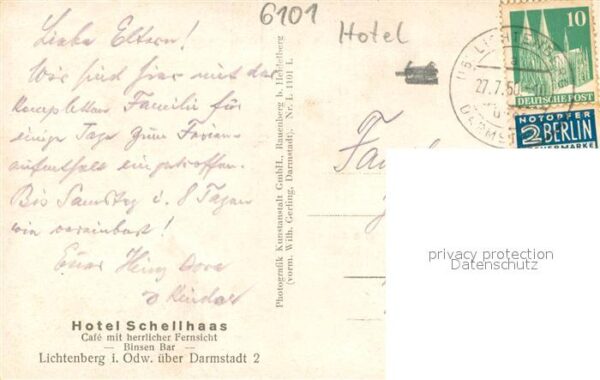 6101
Hotel
Liebe Eltern!
Wir sind hier mit der
kompletten Familie für
einige Tage zum Ferien-
aufenthalt eingetroffen.
Bis Samstag i. 8 Tagen
wie vereinbart!
Eure Heinz Dora
Kinder
Hotel Schellhaas
Café mit herrlicher Fernsicht
— Binsen Bar —
Lichtenberg i. Odw. über Darmstadt 2
Photografik Kunstanstalt GmbH., Rauenberg b. Heidelberg
(vorm. Wilh. Gerling, Darmstadt). Nr. L 1101 L
10
DEUTSCHE POST
NOTOPFER
2 BERLIN
STEUERMARKE
LICHTENB
27.7.50
Fa
privacy protection
Datenschutz